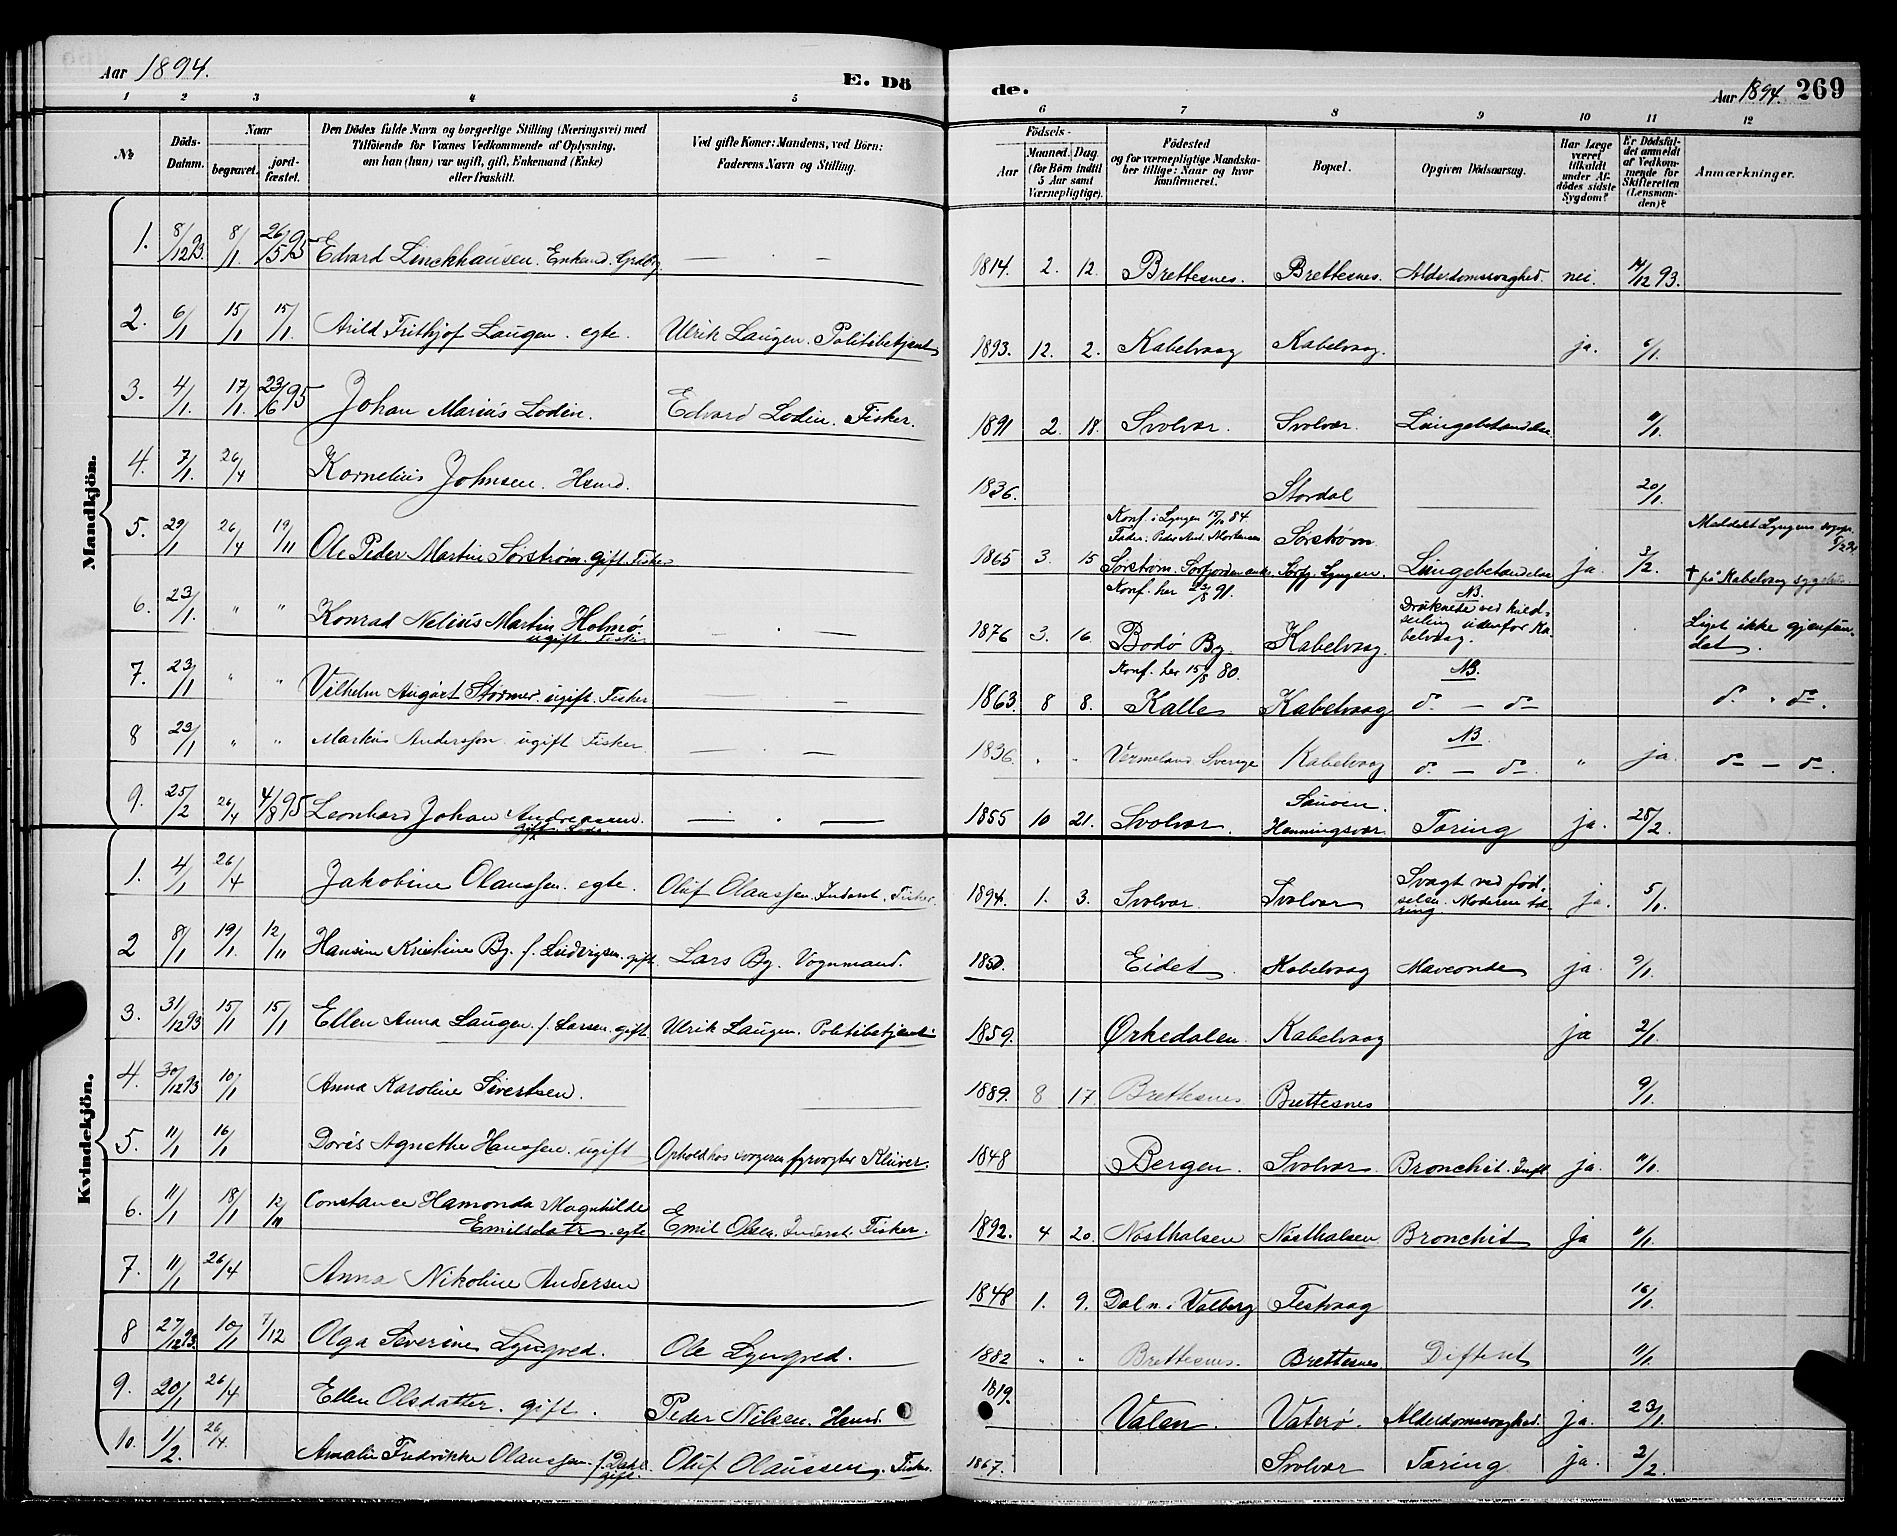 Aar 1894. E. Dö
de. Aar 1894. 269
1 2 3 4 5
6 7 8 9 10 11 12
№ Döds-Datum. Naar begravet. jord-fæstet. Den Dödes fulde Navn og borgerlige Stilling (Næringsvei) med Tilföiende for Voxnes Vedkommende af Oplysning, om han (hun) var ugift, gift, Enkemand (Enke) eller fraskilt. Ved gifte Koner: Mandens, ved Börn: Faderens Navn og Stilling.
Födsels- Aar Maaned. Dag. (for Börn indtil 5 Aar samt Værnepligtige). Födested og for værnepligtige Mandskaber tillige: Naar og hvor konfirmeret. Bopæl. Opgiven Dödsaarsag. Har Læge været tilkaldt under Afdödes sidste Sygdom? Er Dödsfaldet anmeldt af Vedkommende for Skifteretten (Lensmanden)? Anmærkninger.
Mandkjön.
1. 8/12 93 8/1 26/5 95 Edvard Linckhausen. Enkemd. Grdbr. — . — 1814. 2. 12. Brettesnes. Brettesnes. Alderdomssvaghed. nei. 14/12 93.
2. 6/1 15/1 15/1 Arild Frithjof Laugen. egte. Ulrik Laugen. Politibetjent 1893. 12. 2. Kabelvaag Kabelvaag. ja. 6/1.
3. 4/1 17/1 23/6 95 Johan Marius Lodin. Edvard Lodin. Fisker. 1891 2. 18. Svolvær. Svolvær. Lungebetændelse 11/1.
4. 7/1 26/4 Kornelius Johnsen. Hsmd. 1836. Stordal 20/1.
5. 29/1 26/4 19/11 Ole Peder Martin Sörström. gift. Fisker 1865 3. 15 Konf. i Lyngen 15/6 84. Fader: Peder And. Mortensen Sörström. Sörfjorden Sörström Sörfj. Lyngen. Lungebetændelse ja. 3/2. Meldt Lyngens sogn
† på Kabelvaag sygehus
6. 23/1. " " Konrad Nelius Martin Holmö. ugift Fisker — . — 1876 3. 16 Konf. her 23/8 91. Bodö By. Kabelvaag. NB. Druknede ved kuldseiling udenfor Kabelvaag. Liget ikke gjenfundet.
7. 23/1 " " Vilhelm August Störmer. ugift. Fisker — 1863. 8 8. Konf. her 15/8 80. Kalle Kabelvaag NB. do. — do. do. " do.
8 23/1 " " Markus Anderssen. ugift Fisker. — — 1836. " " Vermeland. Sverige Kabelvaag NB. do. — do. " ja do. — do.
9. 25/2 26/4 4/8 95 Leonhard Johan Andreasen. gift. — . — 1855 10 21. Svolvær. Henningsvær. Tæring ja. 28/2.
Kvindekjön.
1. 4/1 26/4 Jakobine Olaussen. egte. Oluf Olaussen. Inderst. Fisker. 1894. 1. 3. Svolvær. Svolvær Svagt ved födselen. Moderen tæring. ja. 5/1.
2 8/1 19/1. 12/11 Hansine Kristine By. f. Ludvigsen. gift. Lars By. Vognmand. 1850. Eidet. Kabelvaag Maveonde ja. 9/1.
3. 31/12 93 15/1 15/1 Ellen Anna Laugen. f. Larsen. gift. Ulrik Laugen. Politibetjent 1859. Örkedalen. Kabelvaag ja 2/1.
4. 30/12 93 10/1 Anna Karoline Sivertsen. 1889. 8 17. Brettesnes. Brettesnes 9/1.
5. 11/1 16/1 Doris Agnethe Hanssen. ugift Ophold hos svogeren fyrvogter Klüver. 1848 Bergen. Svolvær Bronchit. Infl. ja. 11/1.
6. 11/1 18/1 12/11 Constance Hamonda Magnhilde Emilsdatr. egte Emil Olsen. Inderst. Fisker. 1892. 4 20. Nösthalsen Nösthalsen Bronchit Ja 11/1.
7. 11/1 26/4 Anna Nikoline Andersen 1848 1. 9. Dal n. i Valberg Festvaag 16/1.
8 27/12 93. 10/1 7/12 Olga Severine Lyngved. Ole Lyngved. 1882 " " Brettesnes. Brettesnes Difterit 11/1.
9. 20/1 26/4 Ellen Olsdatter. gift. Peder Nilsen. Hsmd. 1819. Valen. Vaterö. Alderdomssvaghed. ja. 23/1.
10. 1/2. 26/4. Amalie Fredrikke Olaussen. f. Dahl gift. Oluf Olaussen. Fisker. 1867. Svolvær Tæring ja. 2/2.